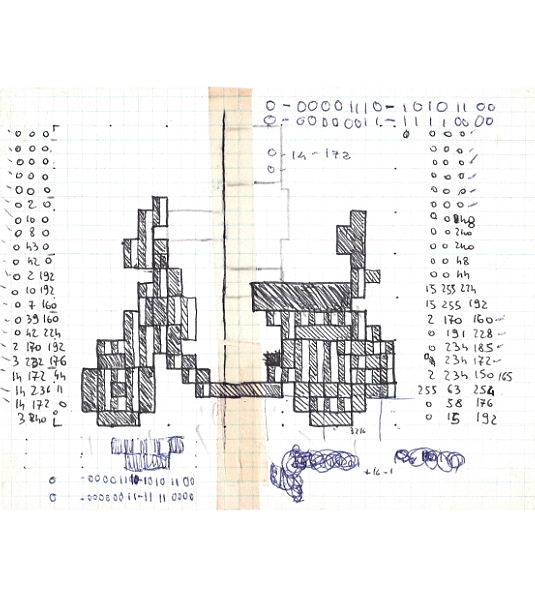 0 - 0000 1110 - 1010 11 00
0 - 0000 0011 - 1111 00 00
0 0 0
0 0 0
0 0 0
0 0 0
0 0 0
0 2 0
0 10 0
0 8 0
0 43 0
0 42 0
0 2 192
0 10 192
0 7 160
0 39 160
0 42 224
2 170 192
3 232 176
14 172 44
14 236 11
14 172 0
3 240
0 - 14 - 172
0
0 0 0
0 0 0
0 0 0
0 0 0
0 0 0
0 0 0
0 0 240
0 0 240
0 0 48
0 0 44
15 255 224
15 255 192
2 170 160
0 191 228
0 234 185
0 234 172
2 234 150 165
255 63 254
0 58 176
0 15 192
3216
+16 -1
0 - 0000 1110 - 1010 11 00
0 - 0000 0011 - 11 11 00 00